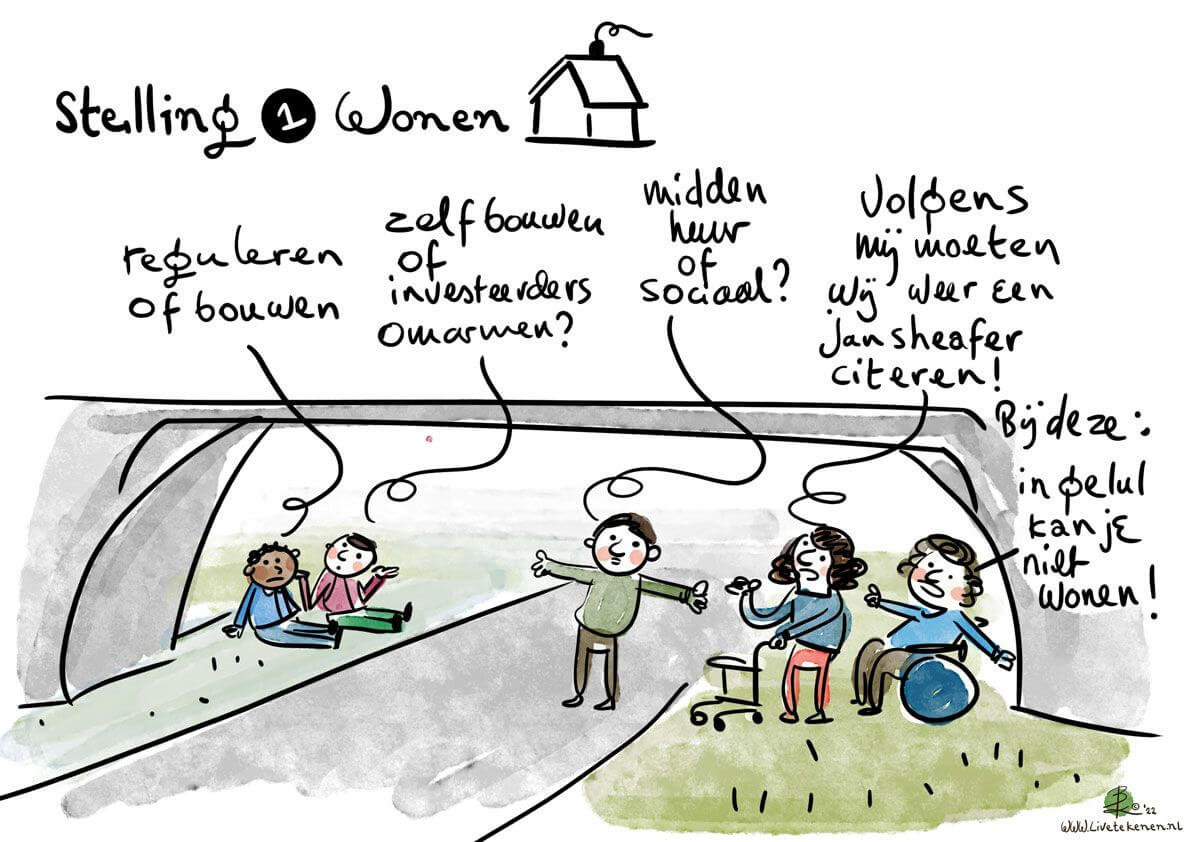 Stelling 1 Wonen
reguleren
of bouwen
zelf bouwen
of
investeerders
omarmen?
midden
huur
of
sociaal?
Volgens
mij moeten
wij weer een
jan sheafer
citeren!
Bij deze:
in gelul
kan je
niet
wonen!
© '22
www.Livetekenen.nl